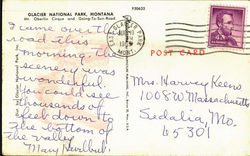 GLACIER NATIONAL PARK, MONTANA
on Oberlin Cirque and Going-To-Sun-Road
P30632
I came over th
road this
morning. The
scenery was
wonderful.
you could see
thousands of
feet down to
the bottom of
the valley
Mary Hurlbut
POST CARD
Mrs. Harvey Keens
1008 W Massachusetts
Sedalia, Mo.
65301